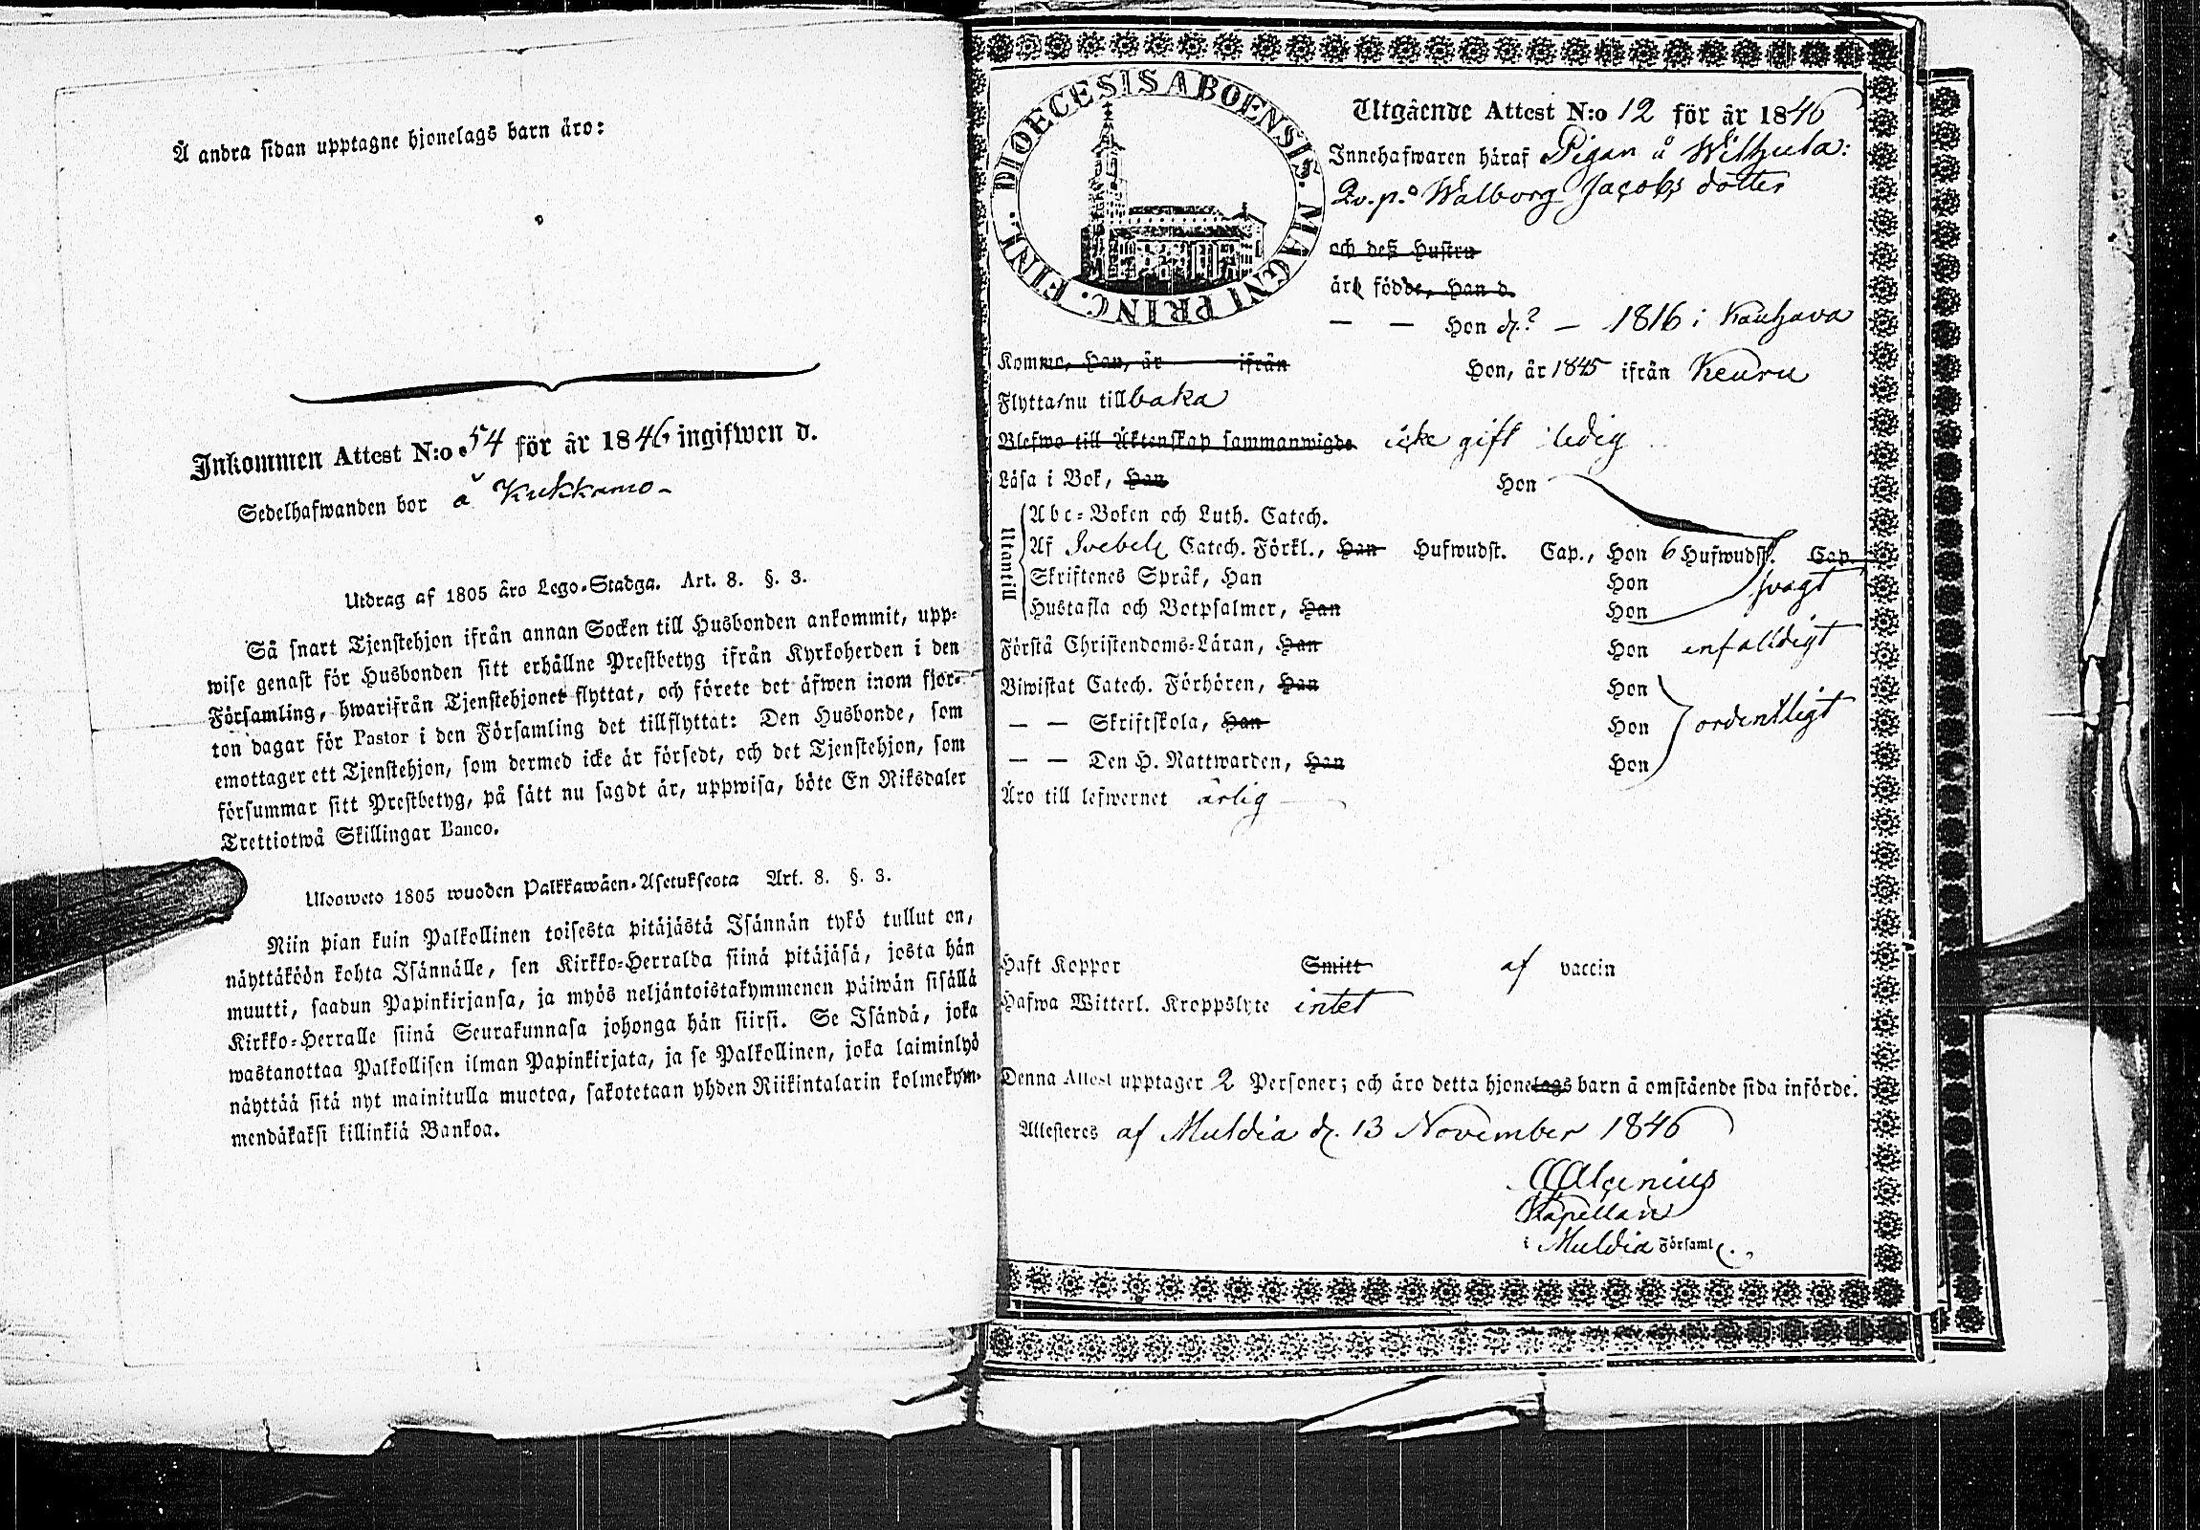 Å andra sidan upptagne hjonelags barn äro:
Inkommen Attest N:o 54 för år 1846 ingifwen d.
Sedelhafwanden bor å Kukkamo
Utdrag af 1805 års Lego-Stadga. Art. 8. §. 3.
Så snart Tjenstehjon ifrån annan Socken till Husbonden ankommit, upp-
wise genast för Husbonden sitt erhållne Prestbetyg ifrån Kyrkoherden i den
Församling, hwarifrån Tjenstehjonet flyttat, och förete det äfwen inom fjor-
ton dagar för Pastor i den Församling det tillflyttat: Den Husbonde, som
emottager ett Tjenstehjon, som dermed icke är försedt, och det Tjenstehjon, som
försummar sitt Prestbetyg, på sätt nu sagdt är, uppwisa, böte En Riksdaler
Trettiotwå Skillingar Banco.
Ulosweto 1805 wuoden Palkkawäen-Asetuksesta Art. 8. §. 3.
Niin pian kuin Palkollinen toisesta pitäjästä Isännän tykö tullut on,
näyttäköön kohta Isännälle, sen Kirkko-Herralda siinä pitäjäsä, josta hän
muutti, saadun Papinkirjansa, ja myös neljäntoistakymmenen päiwän sisällä
Kirkko-Herralle siinä Seurakunnasa johonga hän siirsi. Se Isändä, joka
wastanottaa Palkollisen ilman Papinkirjata, ja se Palkollinen, joka laiminlyö
näyttää sitä nyt mainitulla muotoa, sakotetaan yhden Riikintalarin kolmekym-
mendäkaksi killinkiä Bankoa.
DIOECESIS ABOENSIS. MAGNI PRINC. FINL.
Utgående Attest N:o 12 för år 1846
Innehafwaren häraf Pigan å Wilhula:
Qv.p. Walborg Jacobs dotter
och dess Hustru
äro födde, Han d.
— — Hon d. ? — 1816 i Kauhava
Komme, Han, år ifrån Hon, år 1845 ifrån Keuru
Flytta nu tillbaka
Blefwo till Äktenskap sammanwigde icke gift ledig
Läsa i Bok, Han Hon
Utantill
Abc-Boken och Luth. Catech.
Af Svebelii Catech. Förkl., Han Hufwudst. Cap., Hon 6 Hufwudst. Cap.
Skriftenes Språk, Han Hon svagt
Hustafla och Botpsalmer, Han Hon
Förstå Christendoms-Läran, Han Hon enfaldigt
Biwistat Catech. Förhören, Han Hon
— — Skriftskola, Han Hon ordentligt
— — Den H. Nattwarden, Han Hon
Äro till lefwernet ärlig
Haft Koppor Smitt af vaccin
Hafwa Witterl. Kroppslyte intet
Denna Attest upptager 2 Personer; och äro detta hjonelags barn å omstående sida införde.
Attesteres af Muldia d. 13 November 1846
Algenius
Kapellan
i Muldia Församl.